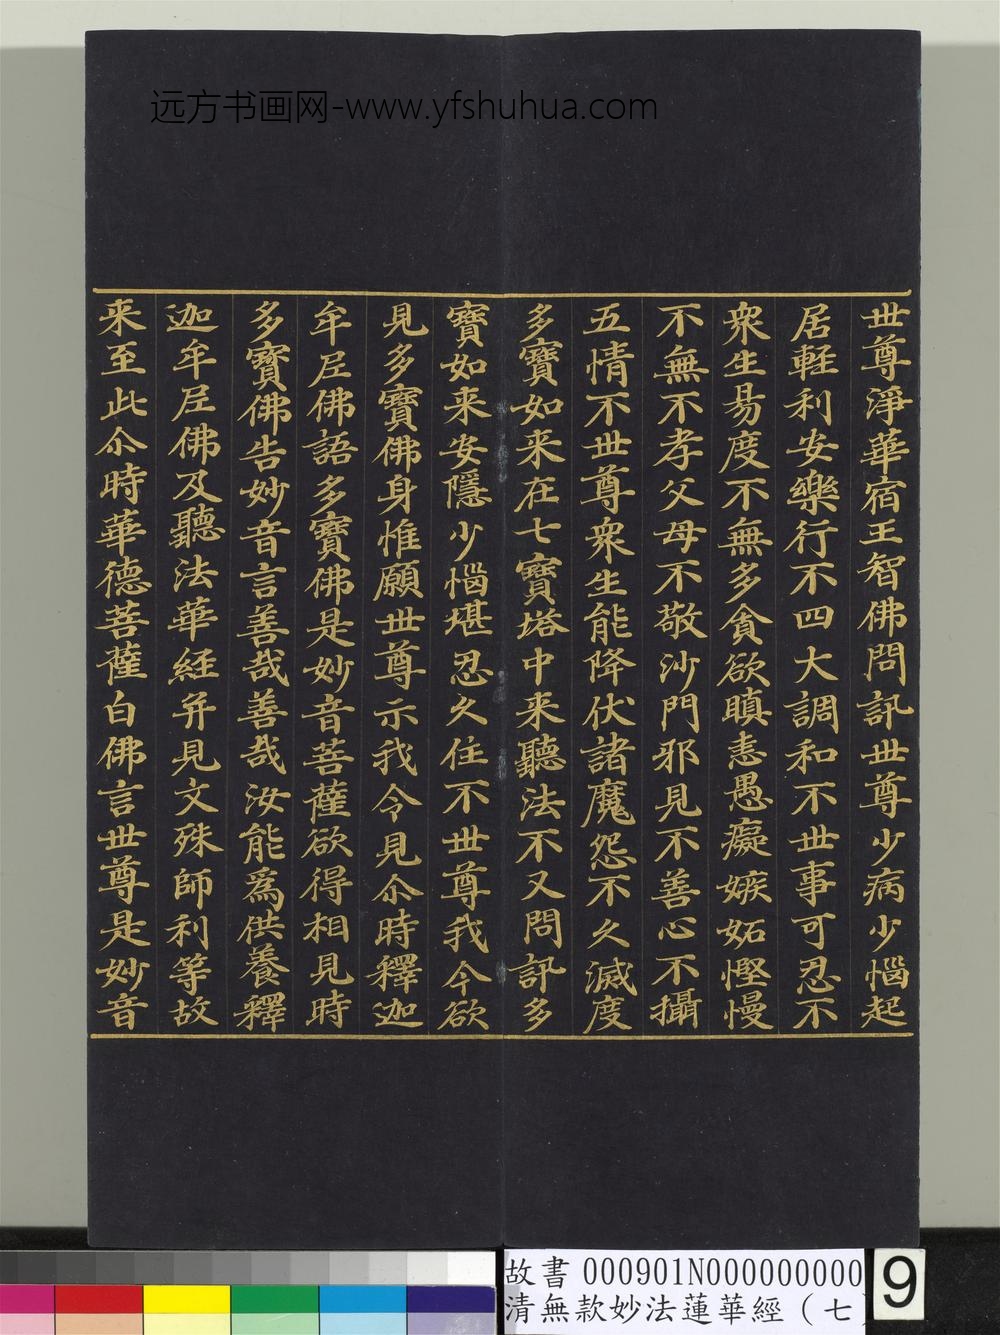 远方书画网-www.yfshuhua.com
世尊淨華宿王智佛問訊世尊少病少惱起
居輕利安樂行不四大調和不世事可忍不
衆生易度不無多貪欲瞋恚愚癡嫉妬慳慢
不無不孝父母不敬沙門邪見不善心不攝
五情不世尊衆生能降伏諸魔怨不久滅度
多寶如来在七寶塔中来聽法不又問訊多
寶如来安隱少惱堪忍久住不世尊我今欲
見多寶佛身惟願世尊示我令見尒時釋迦
牟尼佛語多寶佛是妙音菩薩欲得相見時
多寶佛告妙音言善哉善哉汝能爲供養釋
迦牟尼佛及聽法華經并見文殊師利等故
来至此尒時華德菩薩白佛言世尊是妙音
故書 000901N000000000
清無款妙法蓮華經（七）
9